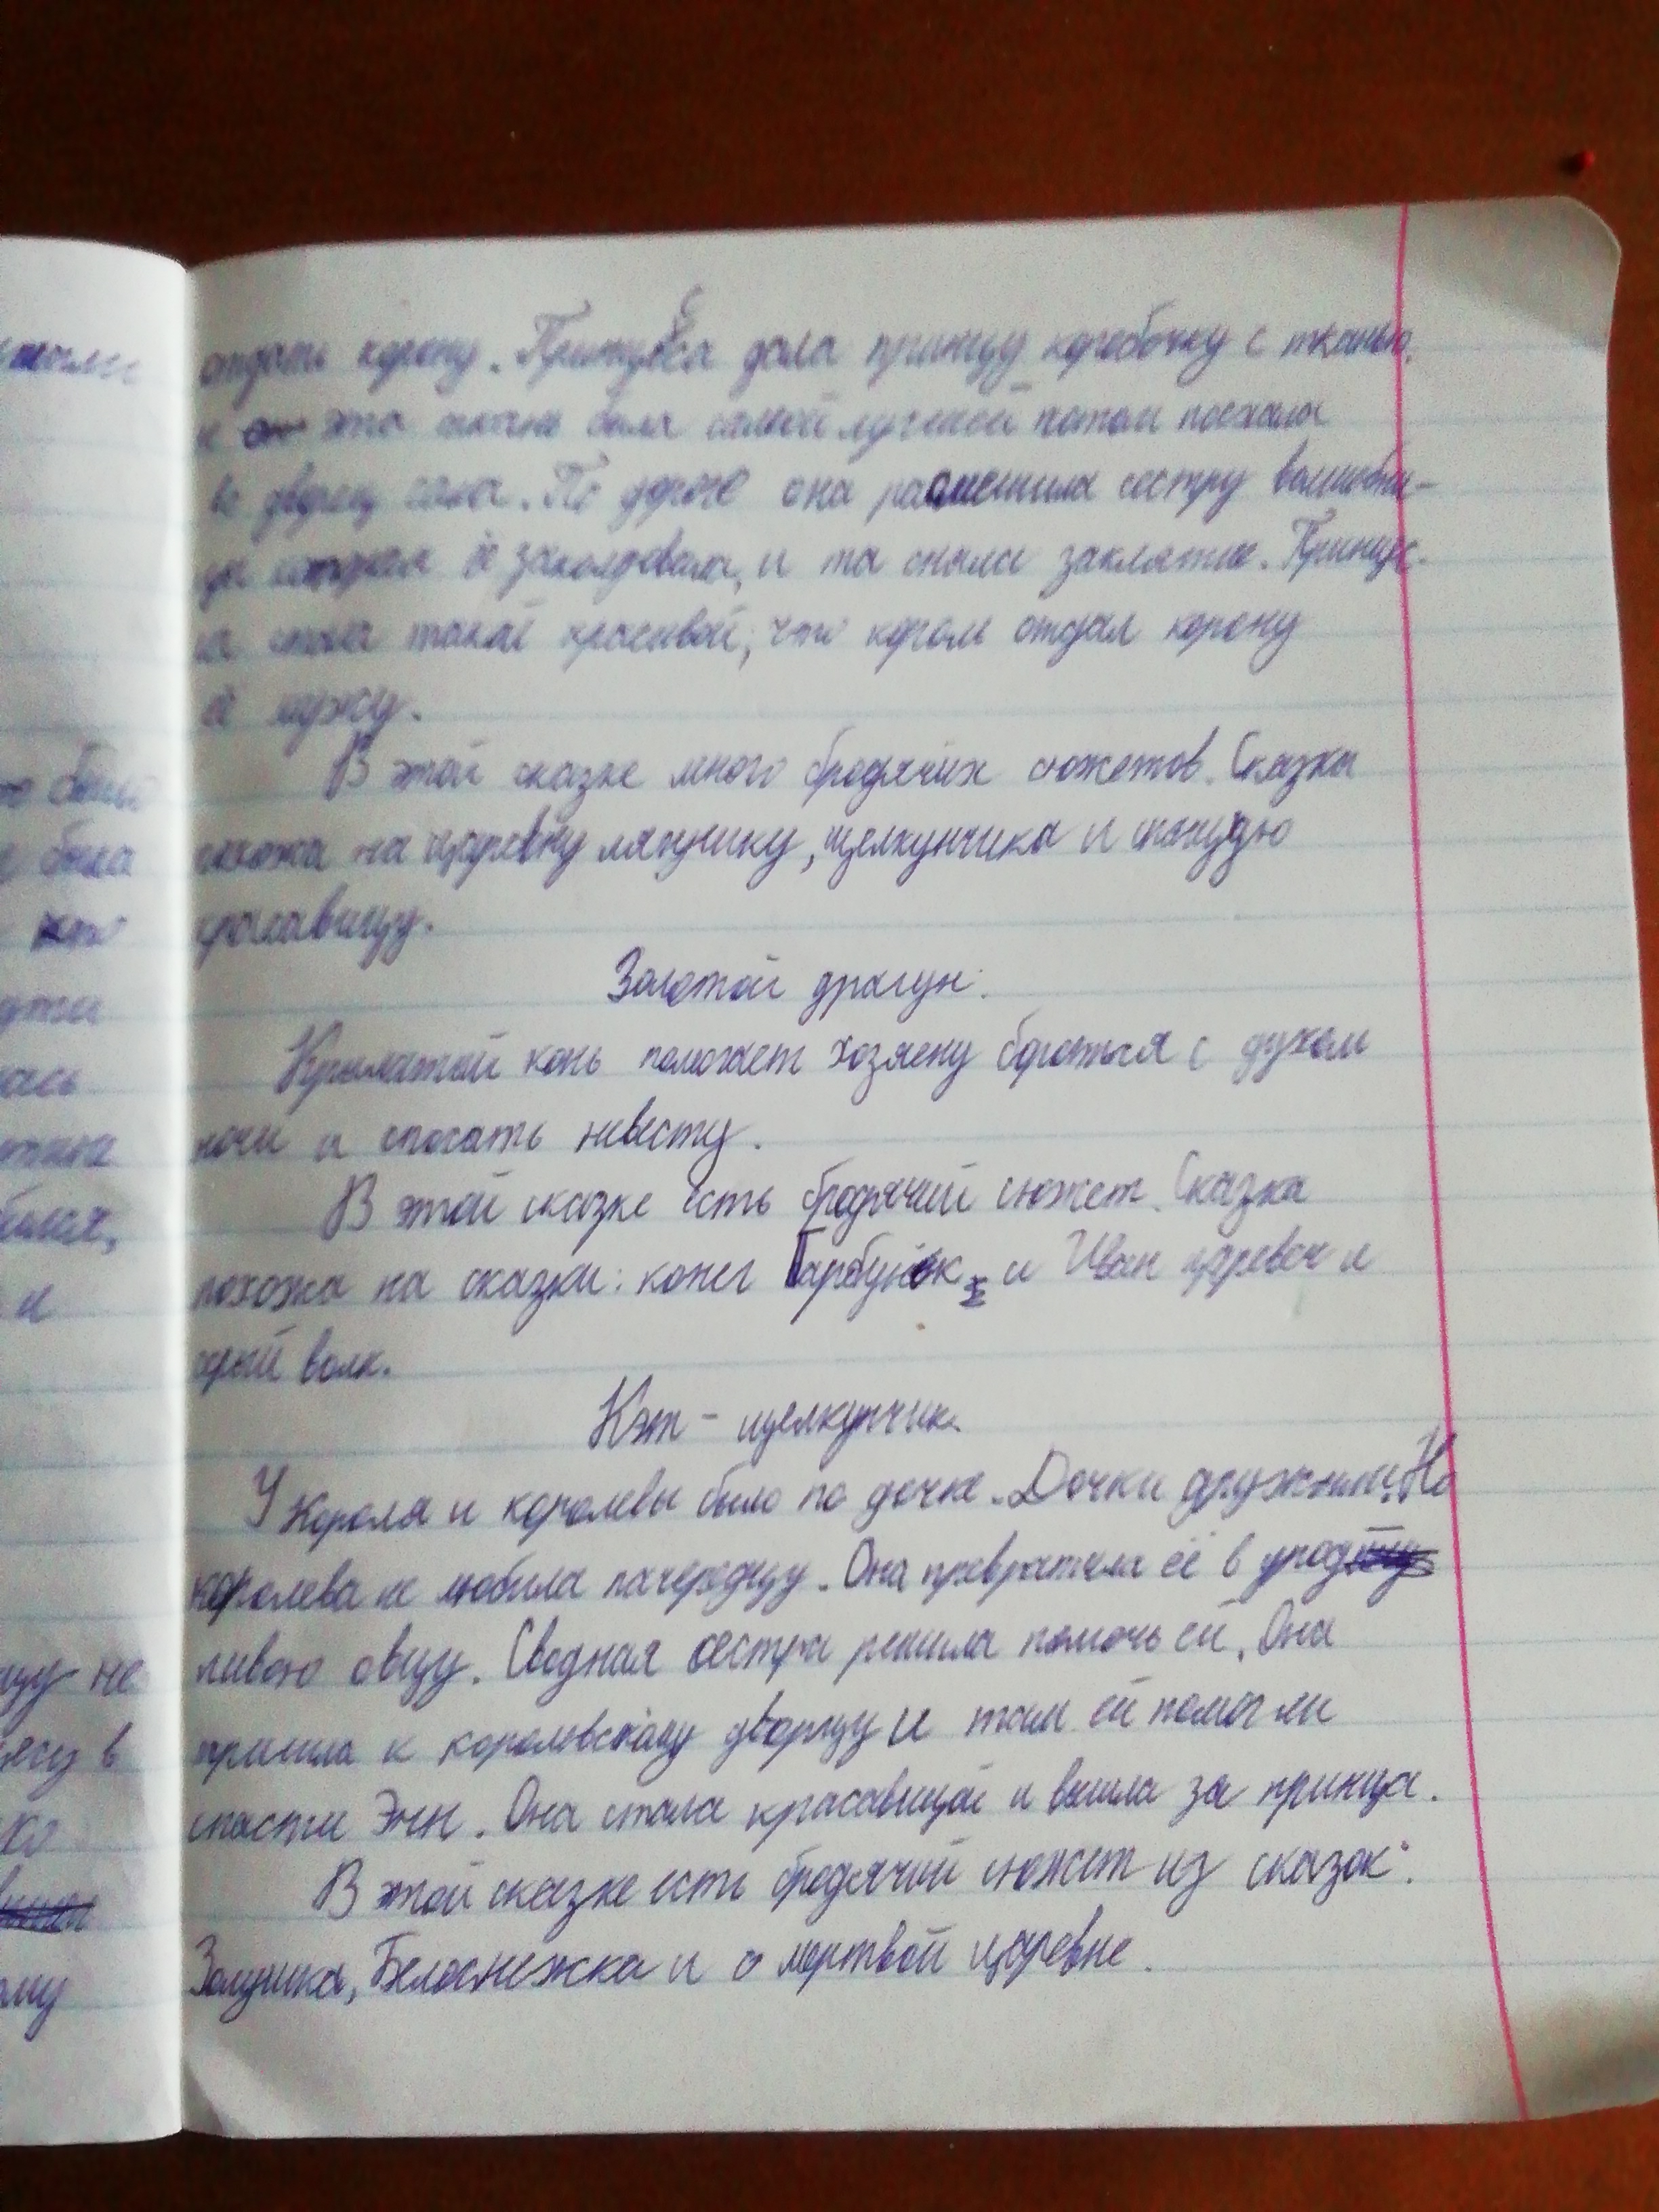 отдать корону. Принцесса дала принцу коробочку с тканью.
и эта ткань была самой лучшей потом поехала
во дворец сама. По дороге она рассмешила сестру волшебни-
цы которая её заколдовала, и та сняла заклятие. Принцес-
са стала такой красивой, что король отдал корону
её мужу.
В этой сказке много бродячих сюжетов. Сказка
похожа на царевну лягушку, щелкунчика и спящую
красавицу.
Золотой драгун.
Крылатый конь помогает хозяену бороться с духом
ночи и спасать невесту.
В этой сказке есть бродячий сюжет. Сказка
похожа на сказки: конёк Гарбунёк, и Иван царевич и
серый волк.
Кэт - щелкунчик.
У Короля и королевы было по дочке. Дочки дружили. Но
королева не любила падчерицу. Она превратила её в урод
ливою овцу. Сводная сестра решила помочь ей. Она
пришла к королевскому дворцу и там ей помогли
спасти Энн. Она стала красавицей и вышла за принца.
В этой сказке есть бродячий сюжет из сказок:
Золушка, Белоснежка и о мертвой царевне.
был
была
не
в